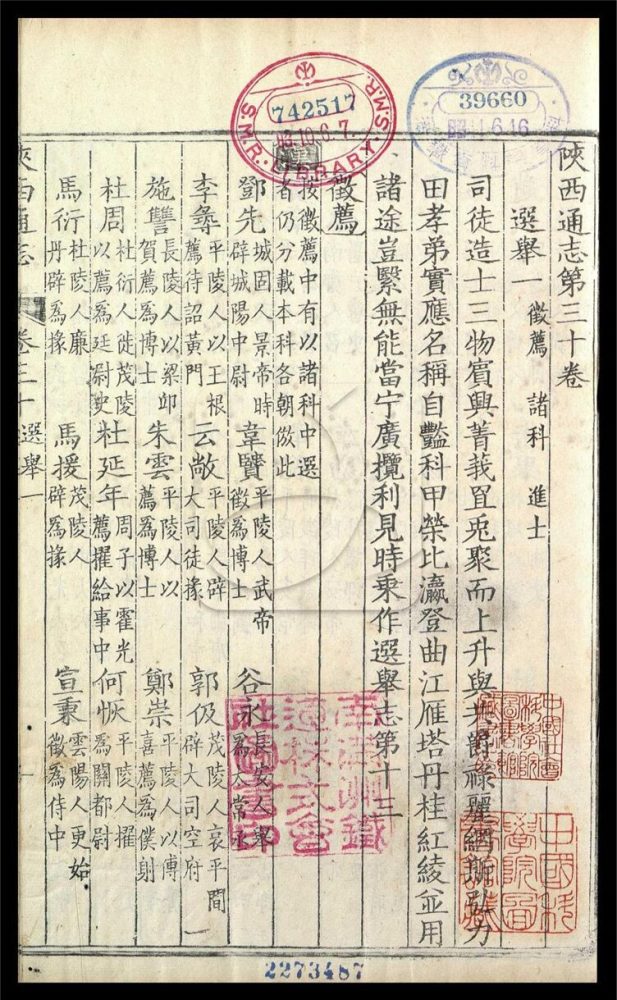 陝西通志第三十卷
選舉一 徵薦 諸科 進士
司徒造士三物賓興菁莪罝兎聚而上升與共爵祿麗網斯弘力
田孝弟實應名稱自豔科甲榮比瀛登曲江雁塔丹桂紅綾並用
諸途豈繄無能當宁廣攬利見時乘作選舉志第十三
徵薦
按徵薦中有以諸科中選
者仍分載本科各朝倣此
鄧先 城固人景帝時辟城陽中尉 韋賢 平陵人武帝徵爲博士 谷永 長安人舉爲太常丞
李尋 平陵人以王根薦待詔黃門 云敞 平陵人辟大司徒掾 郭伋 茂陵人哀平間辟大司空府
施讐 長陵人以梁邱賀薦爲博士 朱雲 平陵人以薦爲博士 鄭崇 平陵人以傅喜薦爲僕射
杜周 杜衍人徙茂陵以薦爲廷尉史 杜延年 周子以霍光薦擢給事中 何恢 平陵人擢爲關都尉
馬衍 杜陵人廉丹辟爲掾 馬援 茂陵人辟爲掾 宣秉 雲陽人更始徵爲侍中
陝西通志 卷三十 選舉一
S.M.R. LIBRARY S.M.R.
742517
39660
南滿洲鐵
道株式會
社圖書印
中國科
學院圖
2273487